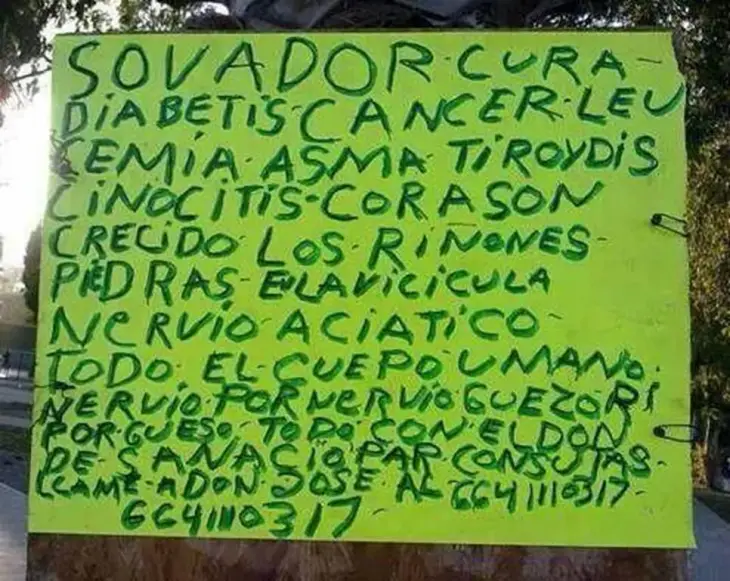 SOVADOR-CURA-
DIABETIS-CANCER-LEU
CEMIA-ASMA-TIROYDIS
CINOCITIS-CORASON
CRECIDO-LOS-RIÑONES-
PIEDRAS-ENLAVICICULA
NERVIO-ACIATICO-
TODO-EL-CUEPO-UMANO-
NERVIO-POR NERVIO GUEZO
POR-GUESO-TODO CON EL DON
DE-SANACIO PAR CONSUTAS-
LLAME-A DON JOSE AL 6641110317-
6641110317-